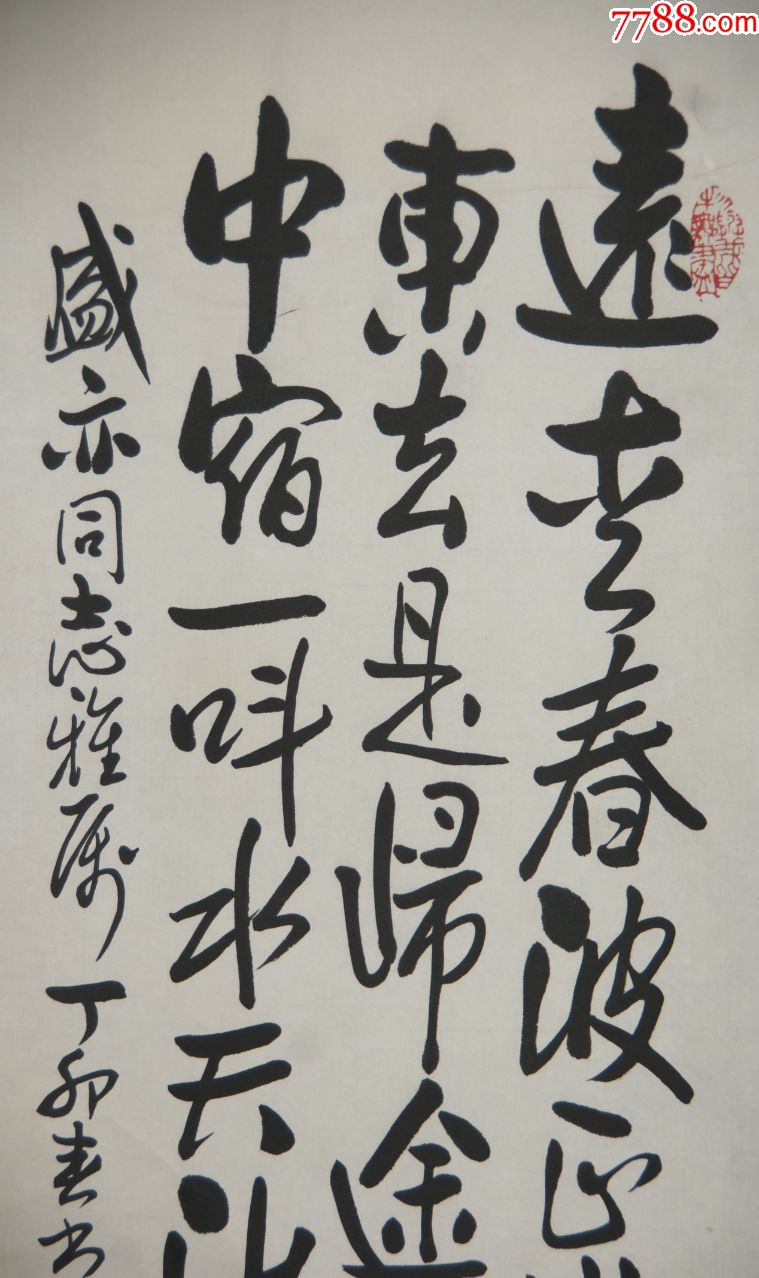 7788.com
遠春波正
東去是歸途
中宿一叫水天
盛亦同志雅属 丁卯春书